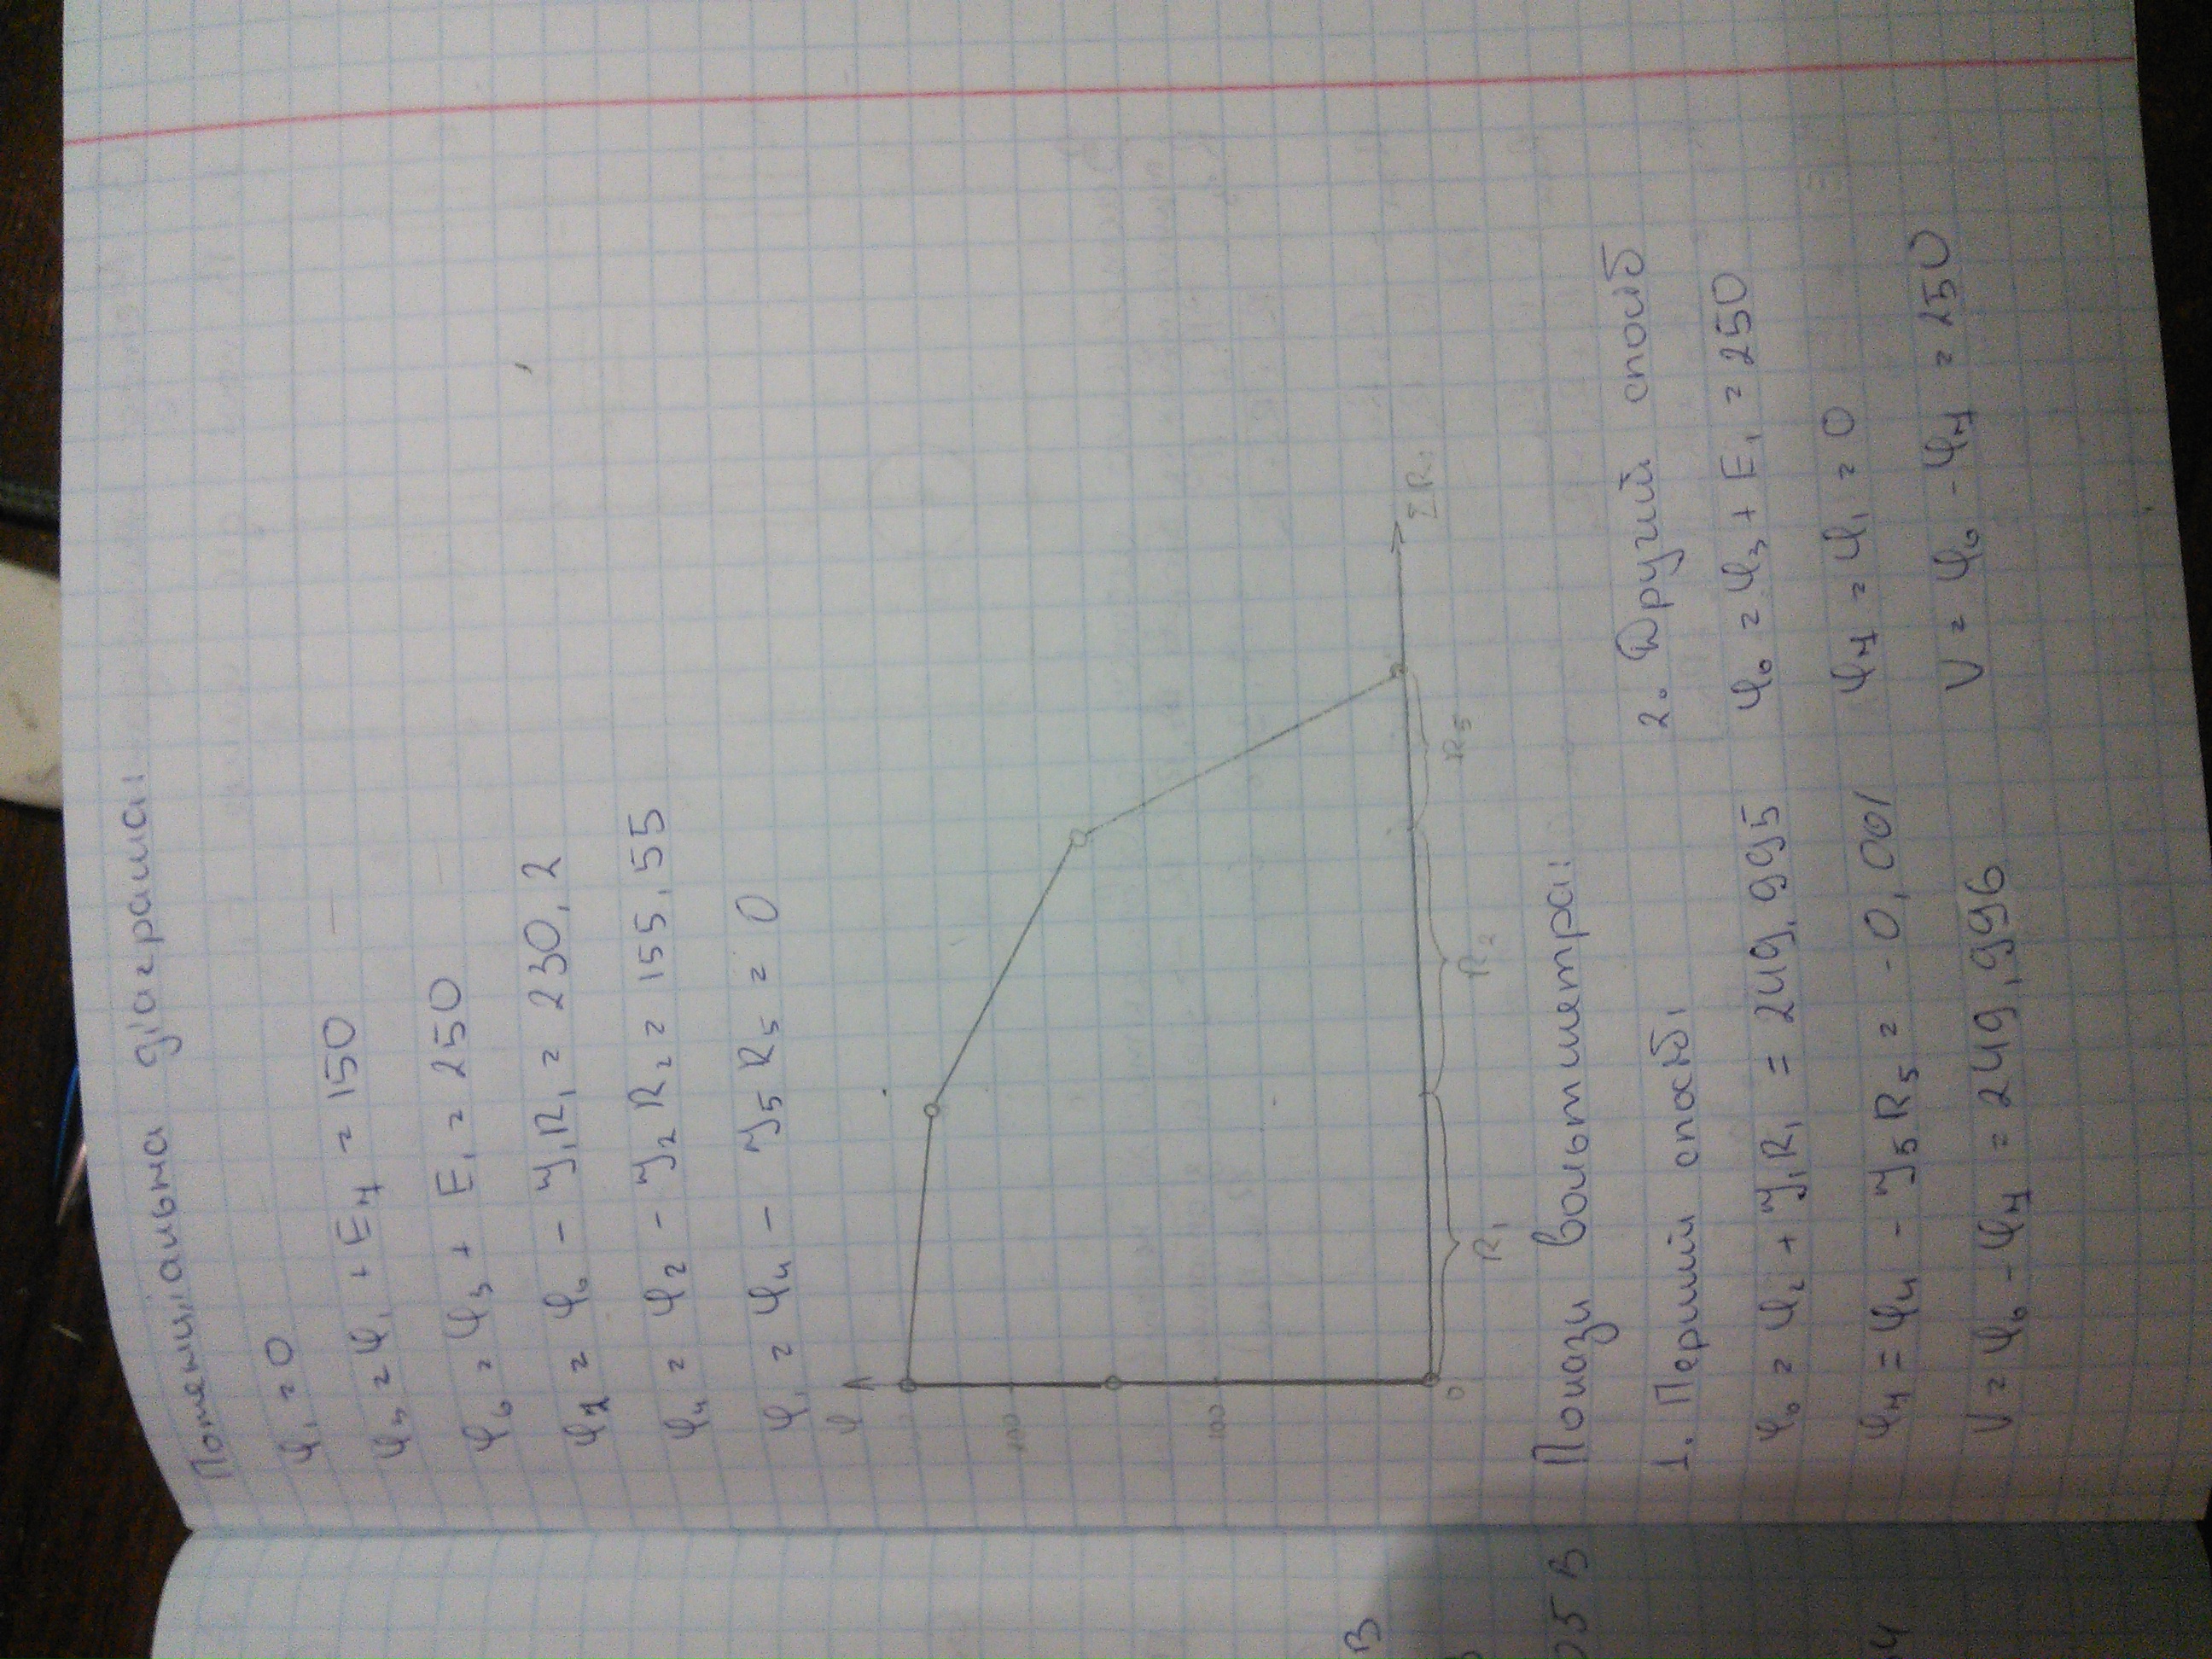 Потенціальна діаграма:
φ₁ = 0
φ₃ = φ₁ + E₄ = 150
φ₆ = φ₃ + E₁ = 250
φ₂ = φ₆ - I₁R₁ = 230,2
φ₄ = φ₂ - I₂R₂ = 155,55
φ₁ = φ₄ - I₅R₅ = 0
φ
200
100
0
R₁
R₂
R₅
ΣR
Покази вольтметра:
1. Перший спосіб
φ₆ = φ₂ + I₁R₁ = 249,995
φ₇ = φ₄ - I₅R₅ = -0,001
V = φ₆ - φ₇ = 249,996
2. Другий спосіб
φ₆ = φ₃ + E₁ = 250
φ₇ = φ₁ = 0
V = φ₆ - φ₇ = 250
В
05 В